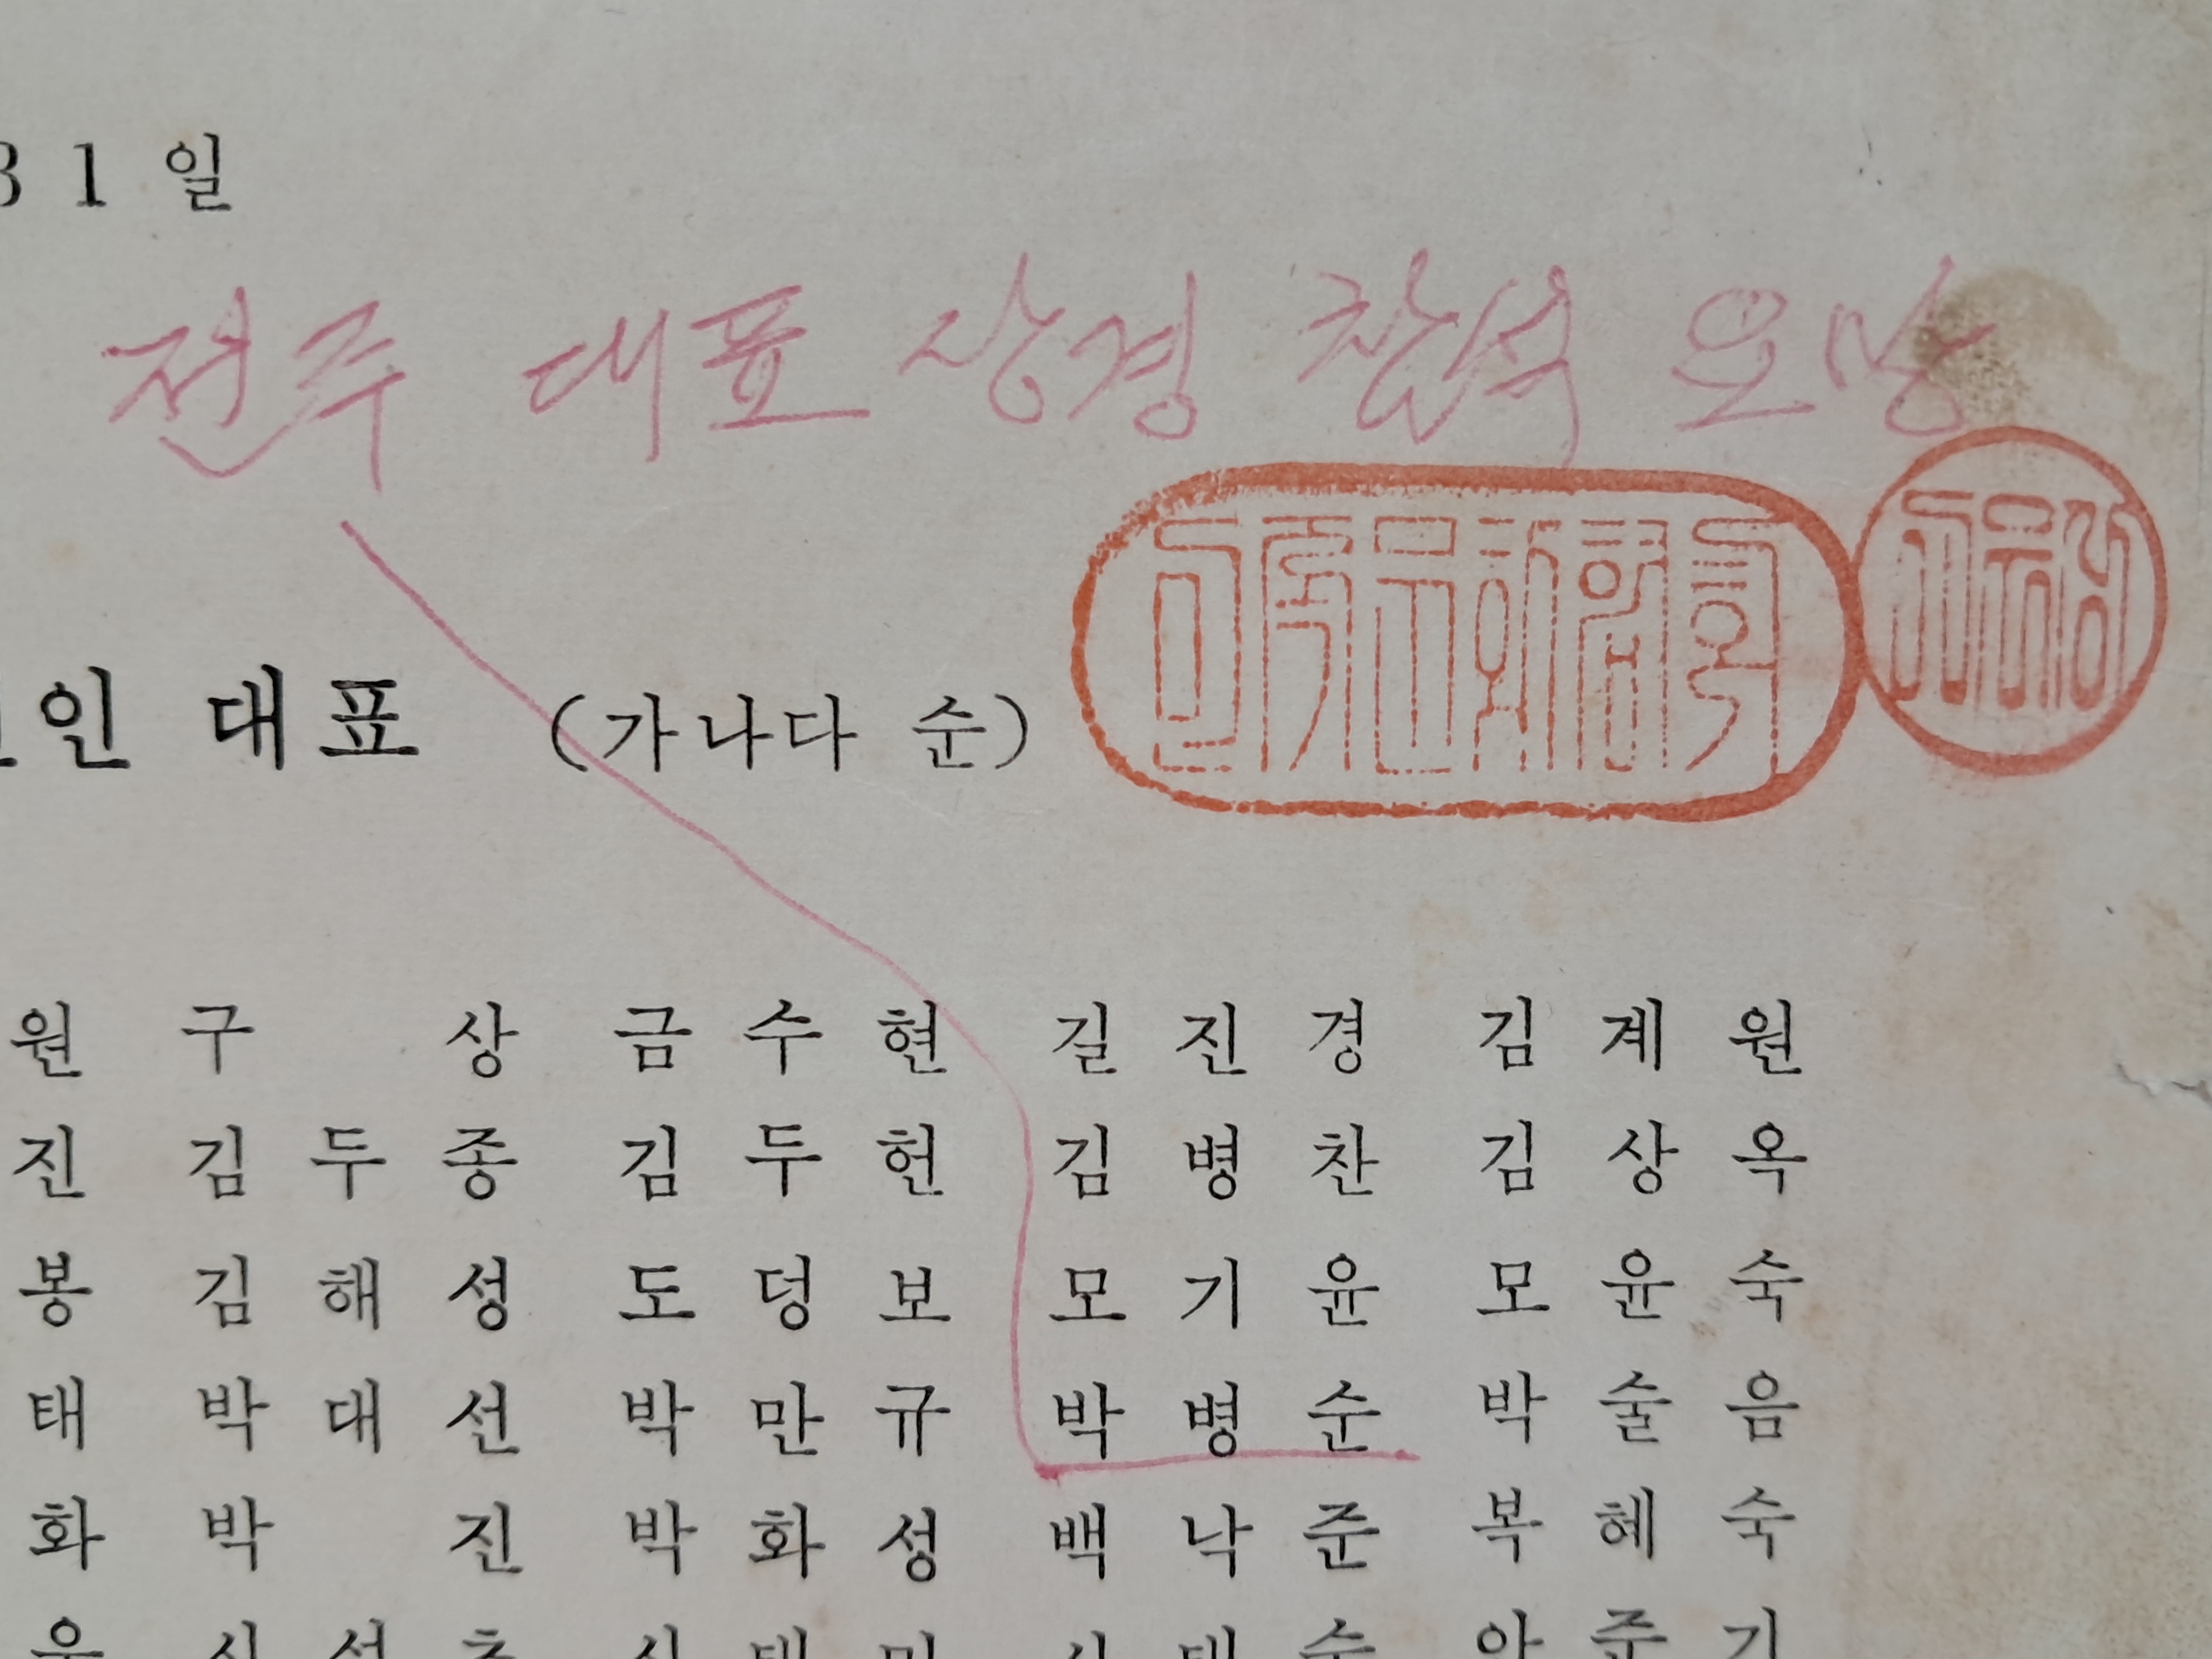 31일
전주 대표 상경 참석 요망
인 대표 (가나다 순)
원 구 상 금수현 길진경 김계원
진 김두종 김두헌 김병찬 김상옥
봉 김해성 도덩보 모기윤 모윤숙
태 박대선 박만규 박병순 박술음
화 박 진 박화성 백낙준 복혜숙